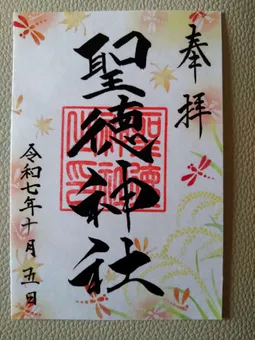 奉拝
聖徳神社
令和七年十月五日